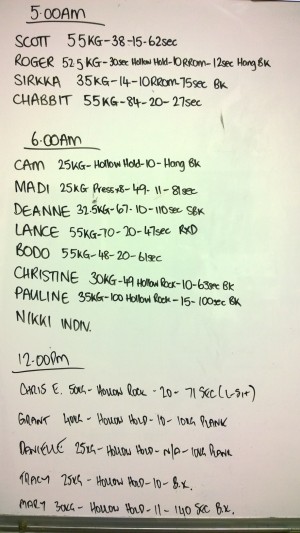 5:00AM
SCOTT 55KG-38-15-62sec
ROGER 52.5KG-30sec Hollow Hold-10RROM-12sec Hang BK
SIRKKA 35KG-14-10RROM-75sec BK
CHABBIT 55KG-84-20-27sec
6:00AM
CAM 25KG-Hollow Hold-10-Hang BK
MADI 25KG Press+8-49-11-81sec
DEANNE 32.5KG-67-10-110sec SBK
LANCE 55KG-70-20-47sec RXD
BODO 55KG-48-20-61sec
CHRISTINE 30KG-49 Hollow Rock-10-63sec BK
PAULINE 35KG-100 Hollow Rock-15-100sec BK
NIKKI INDN.
12:00PM
CHRIS E. 50KG-HOLLOW ROCK-20-71SEC(L-SIT)
GRANT 40KG-HOLLOW HOLD-10-10KG PLANK
DANIELLE 25KG-HOLLOW HOLD-N/A-10KG PLANK
TRACY 25KG-HOLLOW HOLD-10-B.K.
MARY 30KG-HOLLOW HOLD-11-140 SEC B.K.